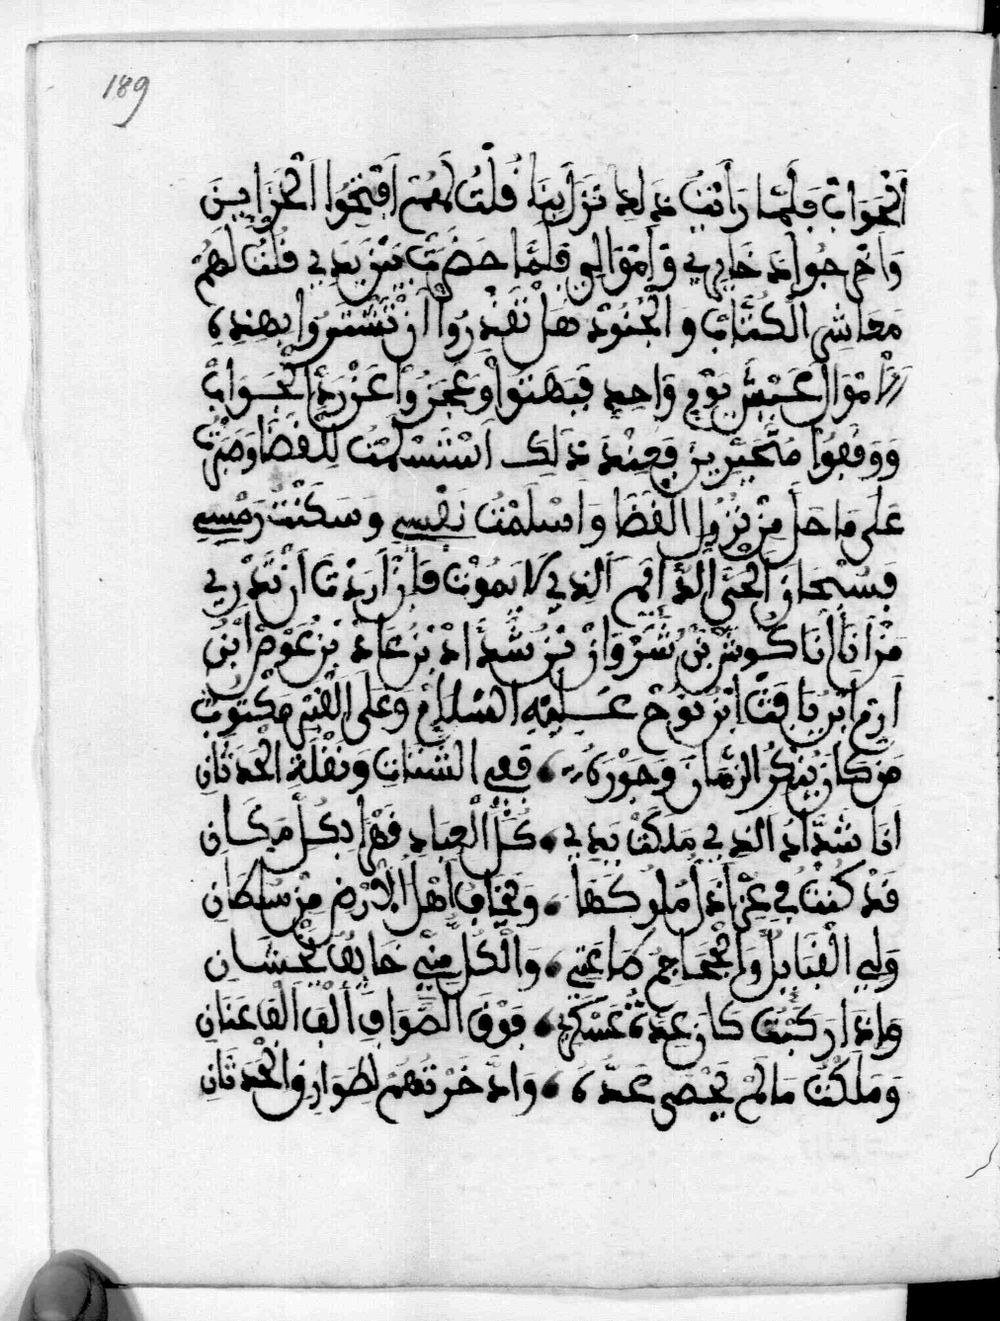 189
الْجَوَابْ فَلَمَّا رَأَيْتُ ذَلِكَ نَزَلَ بِنَا فُلْتُ لَهُمْ اِفْتَحُوا الْخَزَايِنَ
وَاتم جواهر ذخايري وَأَمْوَالِي فَلَمَّا حَضَرَتْ بَيْنَ يَدِي قُلْتُ لَهُمْ
مَعَاشِرَ الْكُتَّابْ وَالْجُنُودْ هَلْ تَقْدِرُوا أَنْ تَشْتَرُوا بِهَذِهِ
الْأَمْوَالْ عَيْشَ يَوْمٍ وَاحِدٍ فَبَهَتُوا وَعَجَزُوا عَنْ رَدِّ الْجَوَابْ
وَوَقَفُوا مُتَحَيِّرِينَ فَعِنْدَ ذَلِكَ اسْتَسْلَمْتُ لِلْقَضَا وَصَبَرْتُ
عَلَى مَا حَلَ مِنْ نُزُولِ الْقَضَا وَاسْلَمْتُ نَفْسِي وَسَكَنْتُ رَمْسِي
فَسُبْحَانَ الْحَيِّ الدَّائِمِ الَذِي لَا يَمُوتْ فَإِنْ أَرَدْتَ أَنْ تَدْرِي
مَنْ أَنَا أَنَا كُوشْ بْنُ شَرْوَانْ بْنُ شَدَّادْ بْنُ عَادْ بْنُ عَوْصْ ابْنُ
اَرَمْ ابْنُ يَافَتْ ابْنُ نُوحْ عَلَيْهِ السَّلَامْ وَعَلَى الْقَبْرِ مَكْتُوبْ
مَنْ كَانَ يُنْكِرُ الزَّمَانَ وَجَوْرَهُ ، فَفِي الشَّتَاتِ وَنَقْلَةِ الْحَدَثَانِ
اَنَا شَدَّادُ الَذِي مَلَكَتْ يَدِي ، كُلَّ الْعِبَادِ قَهْرًا بِكُلِّ مَكَانِ
قَدْ كُنْتُ فِي عِزٍّ أَذَلَّ مُلُوكَهَا ، وَتَخَافُ أَهْلُ الْأَرْضِ مِنْ سُلْطَانِ
وَلِي الْقَبَايِلُ وَالْجَحَاجِحُ طَاعَتِي ، وَالْكُلُّ مِنِّي خَايِفٌ يَخْشَانِ
وَإِذَا رَكَبْتُ كَانَ عِدَّةُ عَسْكَرِي ، فَوْقَ الصَّوَافِ أَلْفَ أَلْفَ عِنَانِ
وَمَلَكْتُ مَا لَمْ يُحْصَى عَدَّهُ ، وَادَّخَرْتُهُمْ لِطَوَارِقِ الْحَدَثَانِ